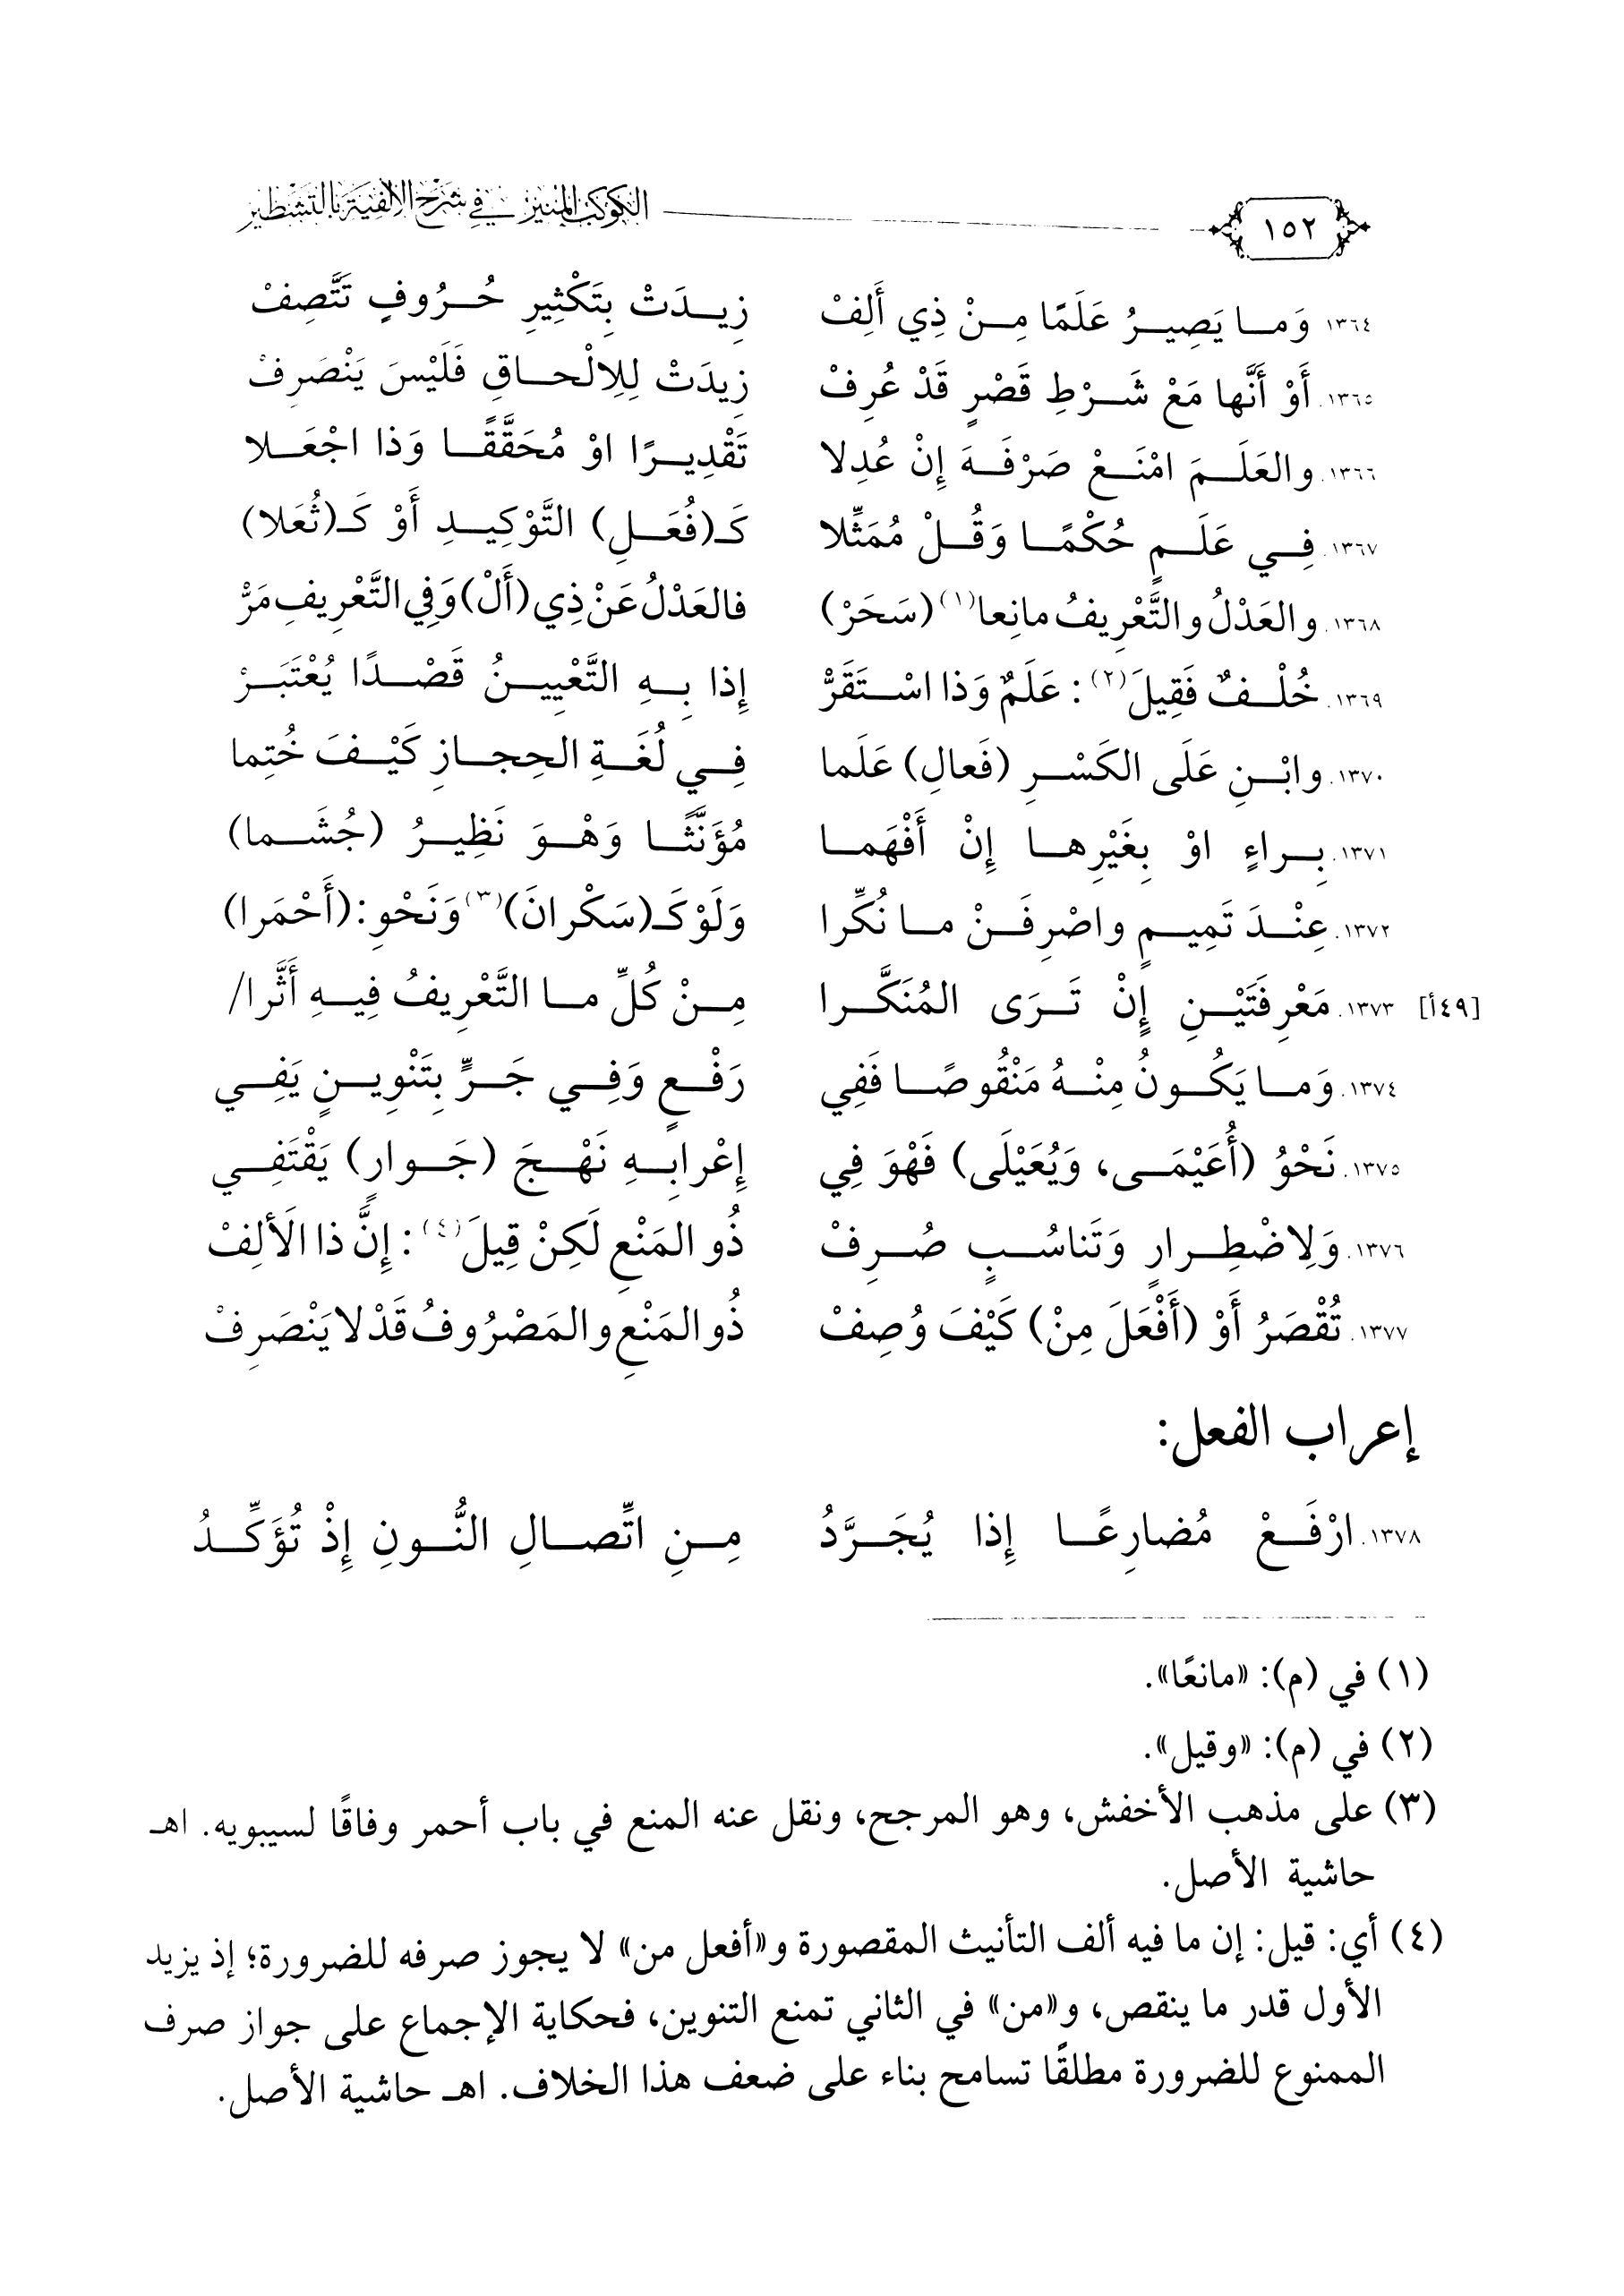 ١٥٢ الكوكب المنير في شرح الألفية بالتشطير
١٣٦٤ وَما يَصِيرُ عَلَمًا مِنْ ذِي أَلِفْ زِيدَتْ بِتَكْثِيرِ حُرُوفٍ تَتَّصِفْ
١٣٦٥. أَوْ أَنَّها مَعْ شَرْطِ قَصْرٍ قَدْ عُرِفْ زِيدَتْ لِلِالْحاقِ فَلَيْسَ يَنْصَرِفْ
١٣٦٦. والعَلَمَ امْنَعْ صَرْفَهَ إِنْ عُدِلا تَقْدِيرًا اوْ مُحَقَّقًا وَذا اجْعَلا
١٣٦٧. فِي عَلَمٍ حُكْمًا وَقُلْ مُمَثِّلا كَـ(فُعَلِ) التَّوْكِيدِ أَوْ كَـ(ثُعَلا)
١٣٦٨. والعَدْلُ والتَّعْرِيفُ مانِعا(١) (سَحَرْ) فالعَدْلُ عَنْ ذِي (أَلْ) وَفِي التَّعْرِيفِ مَرّْ
١٣٦٩. خُلْفٌ فَقِيلَ(٢): عَلَمٌ وَذا اسْتَقَرّْ إِذا بِهِ التَّعْيِينُ قَصْدًا يُعْتَبَرْ
١٣٧٠. وابْنِ عَلَى الكَسْرِ (فَعالِ) عَلَما فِي لُغَةِ الحِجازِ كَيْفَ خُتِما
١٣٧١. بِراءٍ اوْ بِغَيْرِها إِنْ أَفْهَما مُؤَنَّثًا وَهْوَ نَظِيرُ (جُشَما)
١٣٧٢. عِنْدَ تَمِيمٍ واصْرِفَنْ ما نُكِّرا وَلَوْ كَـ(سَكْرانَ)(٣) وَنَحْوِ: (أَحْمَرا)
[٤٩أ] ١٣٧٣. مَعْرِفَتَيْنِ إِنْ تَرَى المُنَكَّرا مِنْ كُلِّ ما التَّعْرِيفُ فِيهِ أَثَّرا/
١٣٧٤. وَما يَكُونُ مِنْهُ مَنْقُوصًا فَفِي رَفْعٍ وَفِي جَرٍّ بِتَنْوِينٍ يَفِي
١٣٧٥. نَحْوُ (أُعَيْمَى، وَيُعَيْلَى) فَهْوَ فِي إِعْرابِهِ نَهْجَ (جَوارٍ) يَقْتَفِي
١٣٧٦. وَلِاضْطِرارٍ وَتَناسُبٍ صُرِفْ ذُو المَنْعِ لَكِنْ قِيلَ(٤): إِنَّ ذا الَألِفْ
١٣٧٧. تُقْصَرُ أَوْ (أَفْعَلَ مِنْ) كَيْفَ وُصِفْ ذُو المَنْعِ والمَصْرُوفُ قَدْ لا يَنْصَرِفْ
إعراب الفعل:
١٣٧٨. ارْفَعْ مُضارِعًا إِذا يُجَرَّدُ مِنِ اتِّصالِ النُّونِ إِذْ تُؤَكِّدُ
(١) في (م): «مانعًا».
(٢) في (م): «وقيل».
(٣) على مذهب الأخفش، وهو المرجح، ونقل عنه المنع في باب أحمر وفاقًا لسيبويه. اهـ
حاشية الأصل.
(٤) أي: قيل: إن ما فيه ألف التأنيث المقصورة و«أفعل من» لا يجوز صرفه للضرورة؛ إذ يزيد
الأول قدر ما ينقص، و«من» في الثاني تمنع التنوين، فحكاية الإجماع على جواز صرف
الممنوع للضرورة مطلقًا تسامح بناء على ضعف هذا الخلاف. اهـ حاشية الأصل.